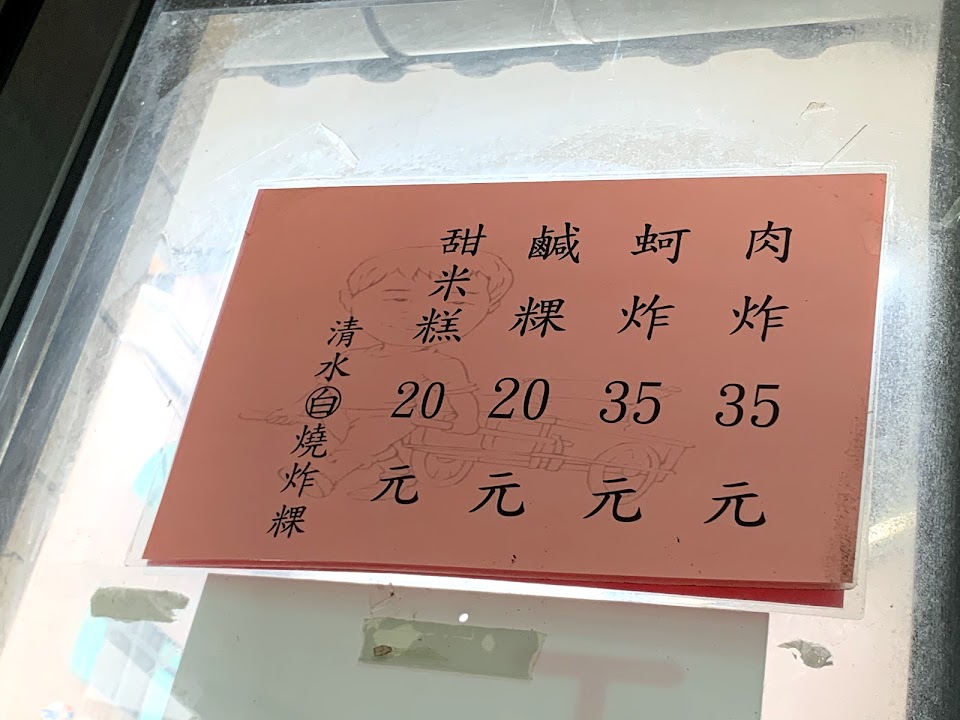 肉炸35元
蚵炸35元
鹹粿20元
甜米糕20元
清水㊂燒炸粿